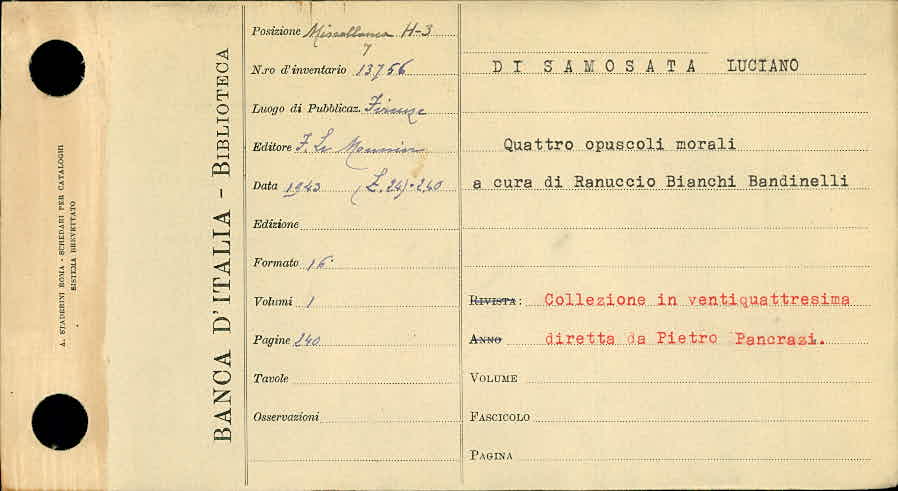 A. STADERINI ROMA - SCHEDARI PER CATALOGHI
SISTEMA BREVETTATO
BANCA D'ITALIA - BIBLIOTECA
Posizione Miscellanea H-3
7
N.ro d'inventario 13756
Luogo di Pubblicaz. Firenze
Editore F. Le Monnier
Data 1943 (£. 24)·240
Edizione
Formato 16°
Volumi 1
Pagine 240
Tavole
Osservazioni
DI SAMOSATA LUCIANO
Quattro opuscoli morali
a cura di Ranuccio Bianchi Bandinelli
RIVISTA: Collezione in ventiquattresima
ANNO diretta da Pietro Pancrazi.
VOLUME
FASCICOLO
PAGINA